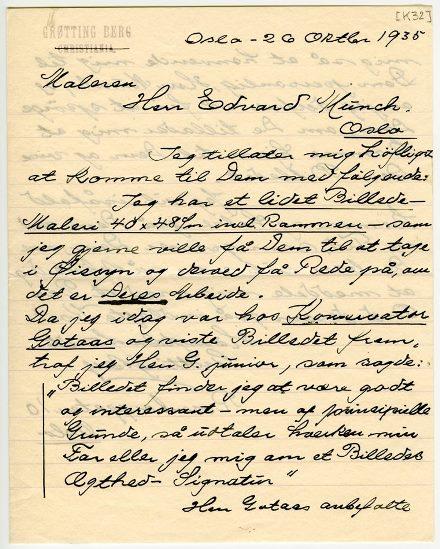 [K32]
GRØTTING BERG
CHRISTIANIA.
Oslo - 26 Oktbr 1935
Maleren
Herr Edvard Munch.
Oslo
Jeg tillater mig høfligst
at komme til Dem med følgende:
Jeg har et lidet Billede-
Maleri 40 x 48 c/m incl. Rammen - som
jeg gjerne ville få Dem til at tage
i Øiesyn og derved få Rede på, om
det er Deres Arbeide.
Da jeg idag var hos Konservator
Gotaas og viste Billedet frem,
traf jeg Herr G. junior, som sagde:
"Billedet finder jeg at være godt
og interessant - men af principielle
Grunde, så udtaler hverken min
Far eller jeg mig om et Billedes
Ægthed - Signatur"
Herr Gotaas anbefalte